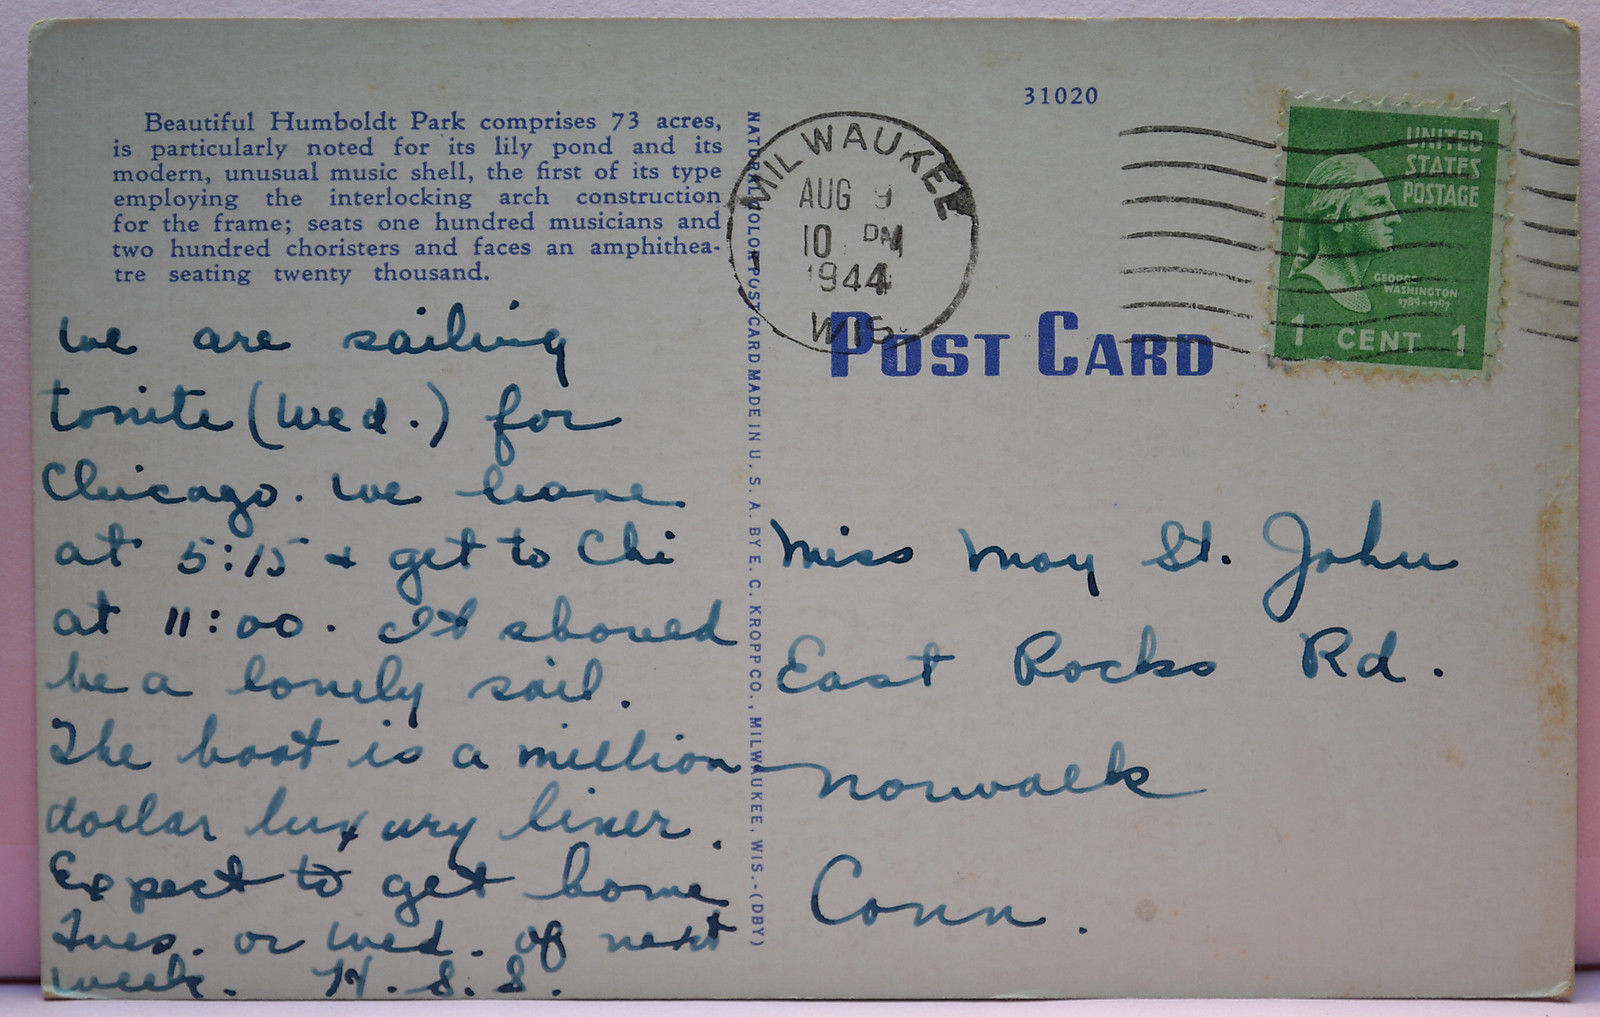 Beautiful Humboldt Park comprises 73 acres,
is particularly noted for its lily pond and its
modern, unusual music shell, the first of its type
employing the interlocking arch construction
for the frame; seats one hundred musicians and
two hundred choristers and faces an amphithea-
tre seating twenty thousand.
We are sailing
tonite (Wed.) for
Chicago. We leave
at 5:15 & get to Chi
at 11:00. It shoued
be a lonely sail.
The boat is a million
dollar luxury liner.
Expect to get home
Tues. or Wed. of next
week. H.S.S.
NATURAL COLOR POST CARD MADE IN U. S. A. BY E. C. KROPP CO., MILWAUKEE, WIS.-(DBY)
31020
MILWAUKEE
AUG 9
10 PM
1944
WIS.
UNITED
STATES
POSTAGE
GEORGE
WASHINGTON
1789-1797
1 CENT 1
POST CARD
Miss May St. John
East Rocks Rd.
Norwalk
Conn.